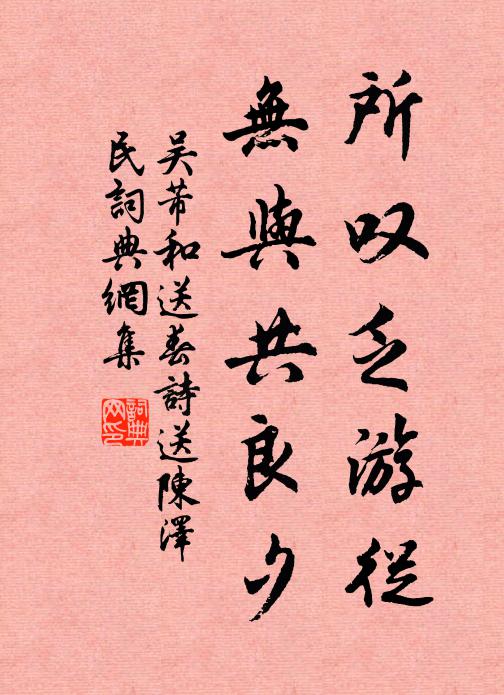 所叹乏游從
無與共良夕
吴芾和送春詩送陳澤
民詞典網集
詞典网印